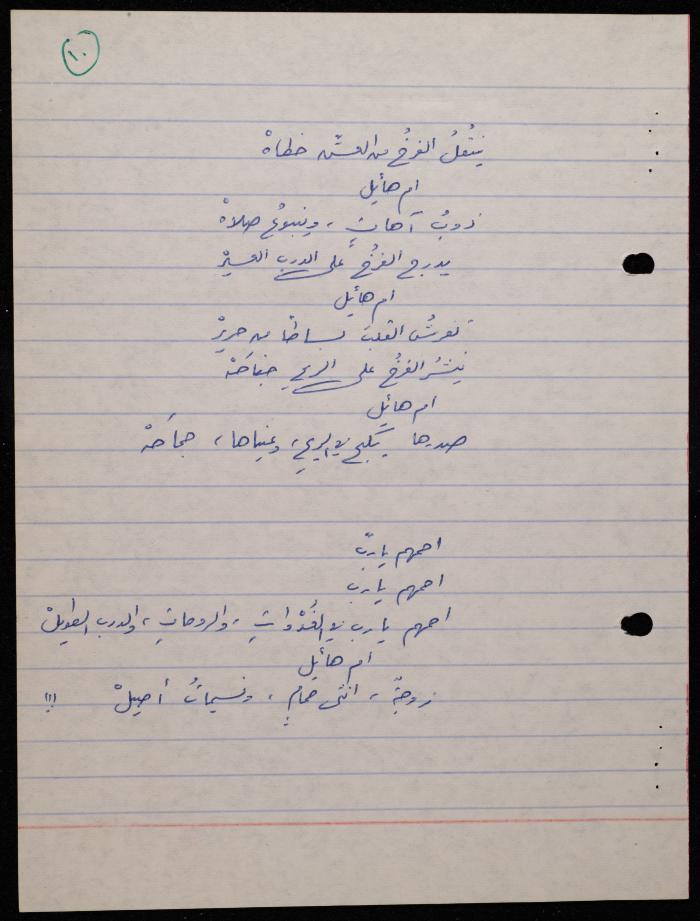 ١٠
يَنْقُلُ الفرخُ من العشّ خطاهْ
ام هائل
ذوبُ آهاتٍ، وينبوعُ صلاهْ
يدرج الفرخُ على الدرب العسيرْ
ام هائل
تفرشُ القلبَ بساطًا من حريرْ
يَنشُرُ الفرخُ على الريحِ جناحَهْ
ام هائل
صدرها يكبح الريحِ، وعيناها، جماحَهْ
احمهم ياربّ
احمهم يارب
احمهم يارب في الغُدُواتِ، والروحاتِ، والدرب الطويلْ
ام هائل
زوجةٌ، انثى حمامٍ، ونسيماتُ أصيلْ !!!